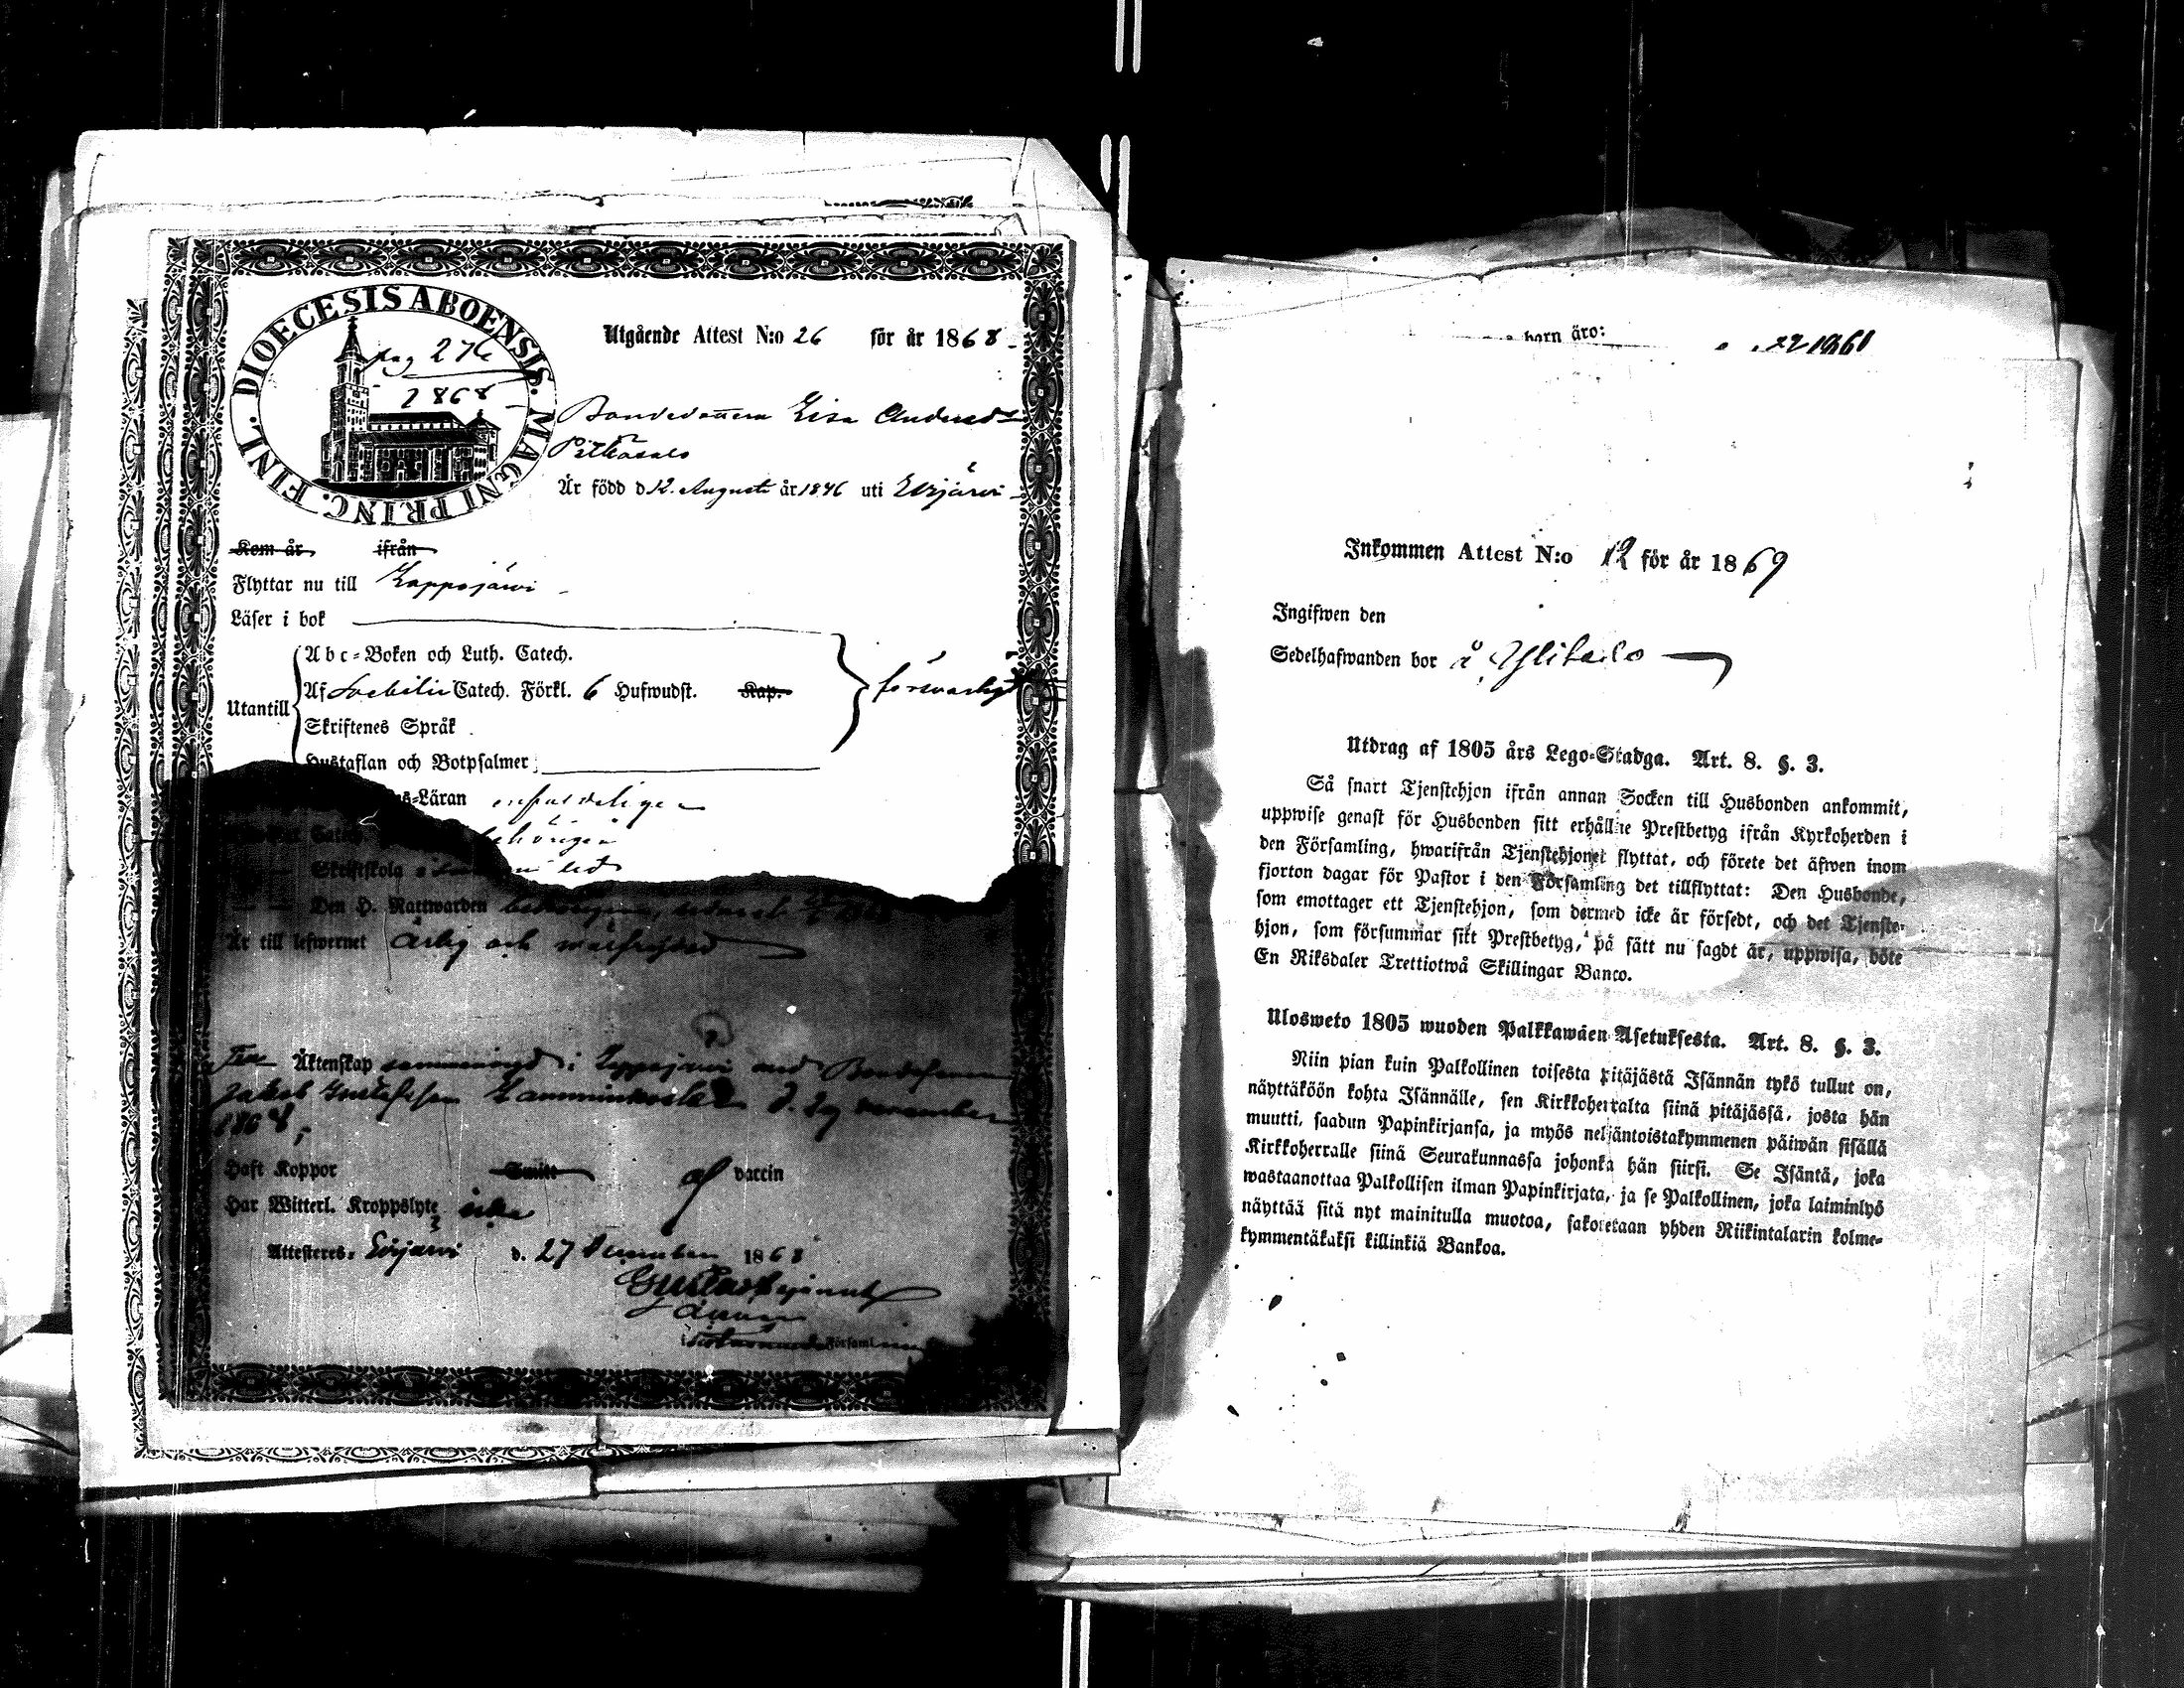 DIOECESIS ABOENSIS. MAGNI PRINC. FINL.
pag 276
1868
Utgående Attest N:o 26 för år 1868
Bondedottern Lisa Andersd
Pitkäsalo
Är född d 12. Augusti år 1846 uti Evijärvi
Kom år ifrån
Flyttar nu till Lappajärvi
Läser i bok
Utantill
Abc-Boken och Luth. Catech.
Af Svebilii Catech. Förkl. 6 Hufwudst. Kap.
försvarligt
Skriftenes Språk
Hustaflan och Botpsalmer
Läran enfaldeligen
Catech. behörigen
Skriftskola
Den H. Nattwarden behörigen,
Är till lefwernet ärlig och välfrejdad
Äktenskap sammanvigd i Lappajärvi med Bondesonen
Jakob Gustafsson d. 29 november
1868
Haft Koppor Smitt af vaccin
Har Witterl. Kroppslyte icke
Attesteres: Evijärvi d. 27 December 1868
Gustaf
Församl
barn äro:
Inkommen Attest N:o 12 för år 1869
Ingifwen den
Sedelhafwanden bor å Ylikarlo
Utdrag af 1805 års Lego-Stadga. Art. 8. §. 3.
Så snart Tjenstehjon ifrån annan Socken till Husbonden ankommit,
uppwise genast för Husbonden sitt erhållne Prestbetyg ifrån Kyrkoherden i
den Församling, hwarifrån Tjenstehjonet flyttat, och förete det äfwen inom
fjorton dagar för Pastor i den Församling det tillflyttat: Den Husbonde,
som emottager ett Tjenstehjon, som dermed icke är försedt, och det Tjenste-
hjon, som försummar sitt Prestbetyg, på sätt nu sagdt är, uppwisa, böte
En Riksdaler Trettiotwå Skillingar Banco.
Ulosweto 1805 wuoden Palkkawäen Asetuksesta. Art. 8. §. 3.
Niin pian kuin Palkollinen toisesta pitäjästä Isännän tykö tullut on,
näyttäköön kohta Isännälle, sen Kirkkoherralta siinä pitäjässä, josta hän
muutti, saadun Papinkirjansa, ja myös neljäntoistakymmenen päiwän sisällä
Kirkkoherralle siinä Seurakunnassa johonka hän siirsi. Se Isäntä, joka
wastaanottaa Palkollisen ilman Papinkirjata, ja se Palkollinen, joka laiminlyö
näyttää sitä nyt mainitulla muotoa, sakotetaan yhden Riikintalarin kolme-
kymmentäkaksi killinkiä Bankoa.